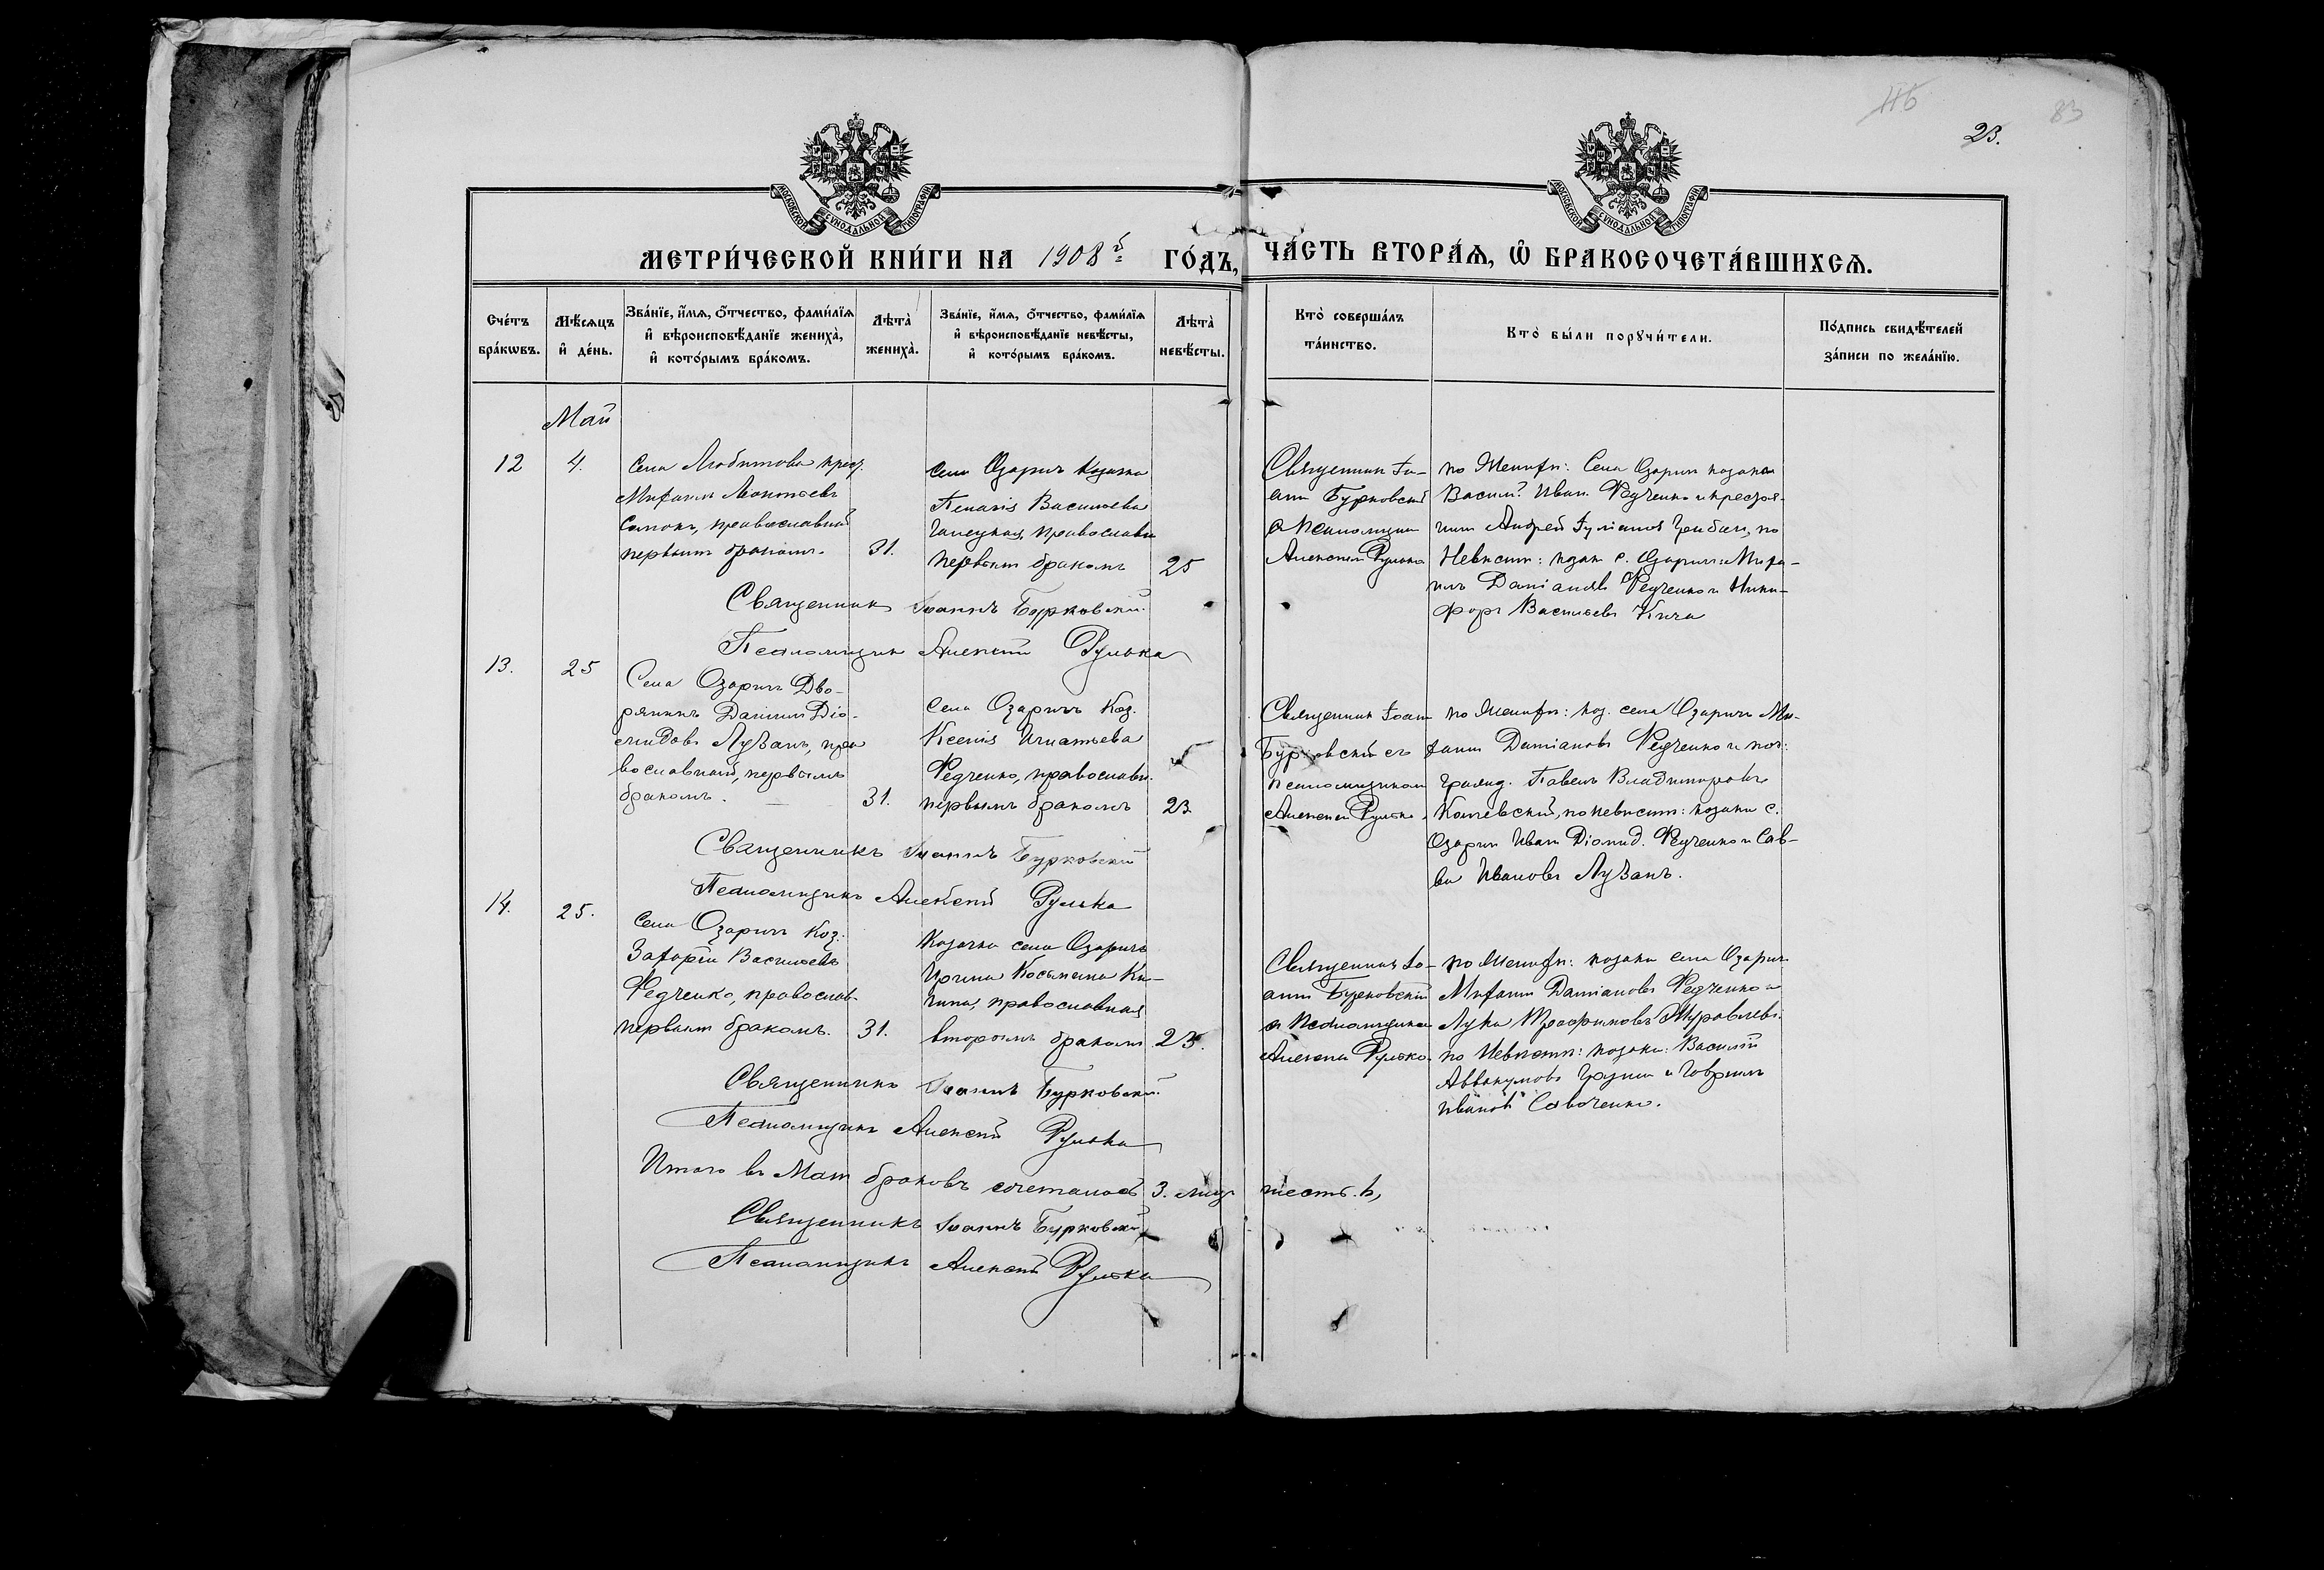 23.
83
МОСКОВСКОЙ СѴНОДАЛЬНОЙ ТИПОГРАФІИ
МОСКОВСКОЙ СѴНОДАЛЬНОЙ ТИПОГРАФІИ
МЕТРИ́ЧЕСКОЙ КНИ́ГИ НА 1908 ГО́ДЪ, ЧА́СТЬ ВТОРА́Ѧ, Ѡ БРАКОСОЧЕТА́ВШИХСѦ.
Сче́тъ бра́кѡвъ.
Мѣ́сѧцъ и҆ де́нь.
Зва́нїе, и҆́мѧ, ѻ҆́тчество, фами́лїѧ
и҆ вѣроисповѣ́данїе жениха̀,
и҆ кото́рымъ бра́комъ.
Лѣта̀ жениха̀.
Зва́нїе, и҆́мѧ, ѻ҆́тчество, фами́лїѧ
и҆ вѣроисповѣ́данїе невѣ́сты,
и҆ кото́рымъ бра́комъ.
Лѣта̀ невѣ́сты.
Кто̀ соверша́лъ
та́инство.
Кто̀ бы́ли порꙋчи́тели.
По́дпись свидѣ́телей
за́писи по жела́нїю.
Май
12
4.
Села Любитова крест.
Михаилъ Леонтьевъ
православный
первымъ бракомъ.
31.
Села Озаричъ козачка
Васильева
православн
первымъ бракомъ
25
Священник Іо-
анн Бурковский
с псаломщик
Алексей Рулько
по жених: Села Озарич козаки
Васил. Иван. Федченко и крестья-
нин Андрей по
Невѣсте: козак с. Озарич: Миха-
ил Даміановъ Федченко и Ники-
форъ Васильевъ Кича
Священникъ Іоаннъ Бурковскій
Псаломщикъ Алексѣй Рулька
13.
25
Села Озарич Дво-
рянинъ Даніил Діо-
мидовъ Лузанъ, пра
вославный, первымъ
бракомъ.
31.
Села Озаричъ Коз.
Ксенія Игнатьева
Федченко, православн.
первымъ бракомъ
23
Священник Іоан
Бурковский съ
псаломщиком
Алексей Рулько.
по жених: коз. села Озаричъ Ми-
хаил Даміановъ Федченко и поч:
гражд. Павелъ Владимировъ
по невѣсте: козаки с.
Озарич Иван Діомид. Федченко и Сав-
ва Ивановъ Лузанъ.
Священникъ Іоаннъ Бурковский
Псаломщикъ Алексѣй Рулька
14.
25.
Села Озарич Коз.
Захарій Васильевъ
Федченко, православ
первым бракомъ.
31.
Козачка села Озаричъ
Ирина Косьмина Ки-
чина, православная
вторымъ браком
23.
Священник Іо-
анн Бурковский
с псаломщиком
Алексей Рулько.
по жених: козаки села Озарич
Михаил Даміановъ Федченко и
Лука Трофимовъ Журавлевъ.
по Невѣсте: козаки: Василій
Аввакумовъ и Гавриилъ
Иванов Савченко.
Священникъ Іоаннъ Бурковский.
Псаломщикъ Алексѣй Рулька
Итого въ Маѣ браковъ сочеталось 3. лицъ шесть. 6,
Священникъ Іоаннъ Бурковский
Псаломщикъ Алексѣй Рулька